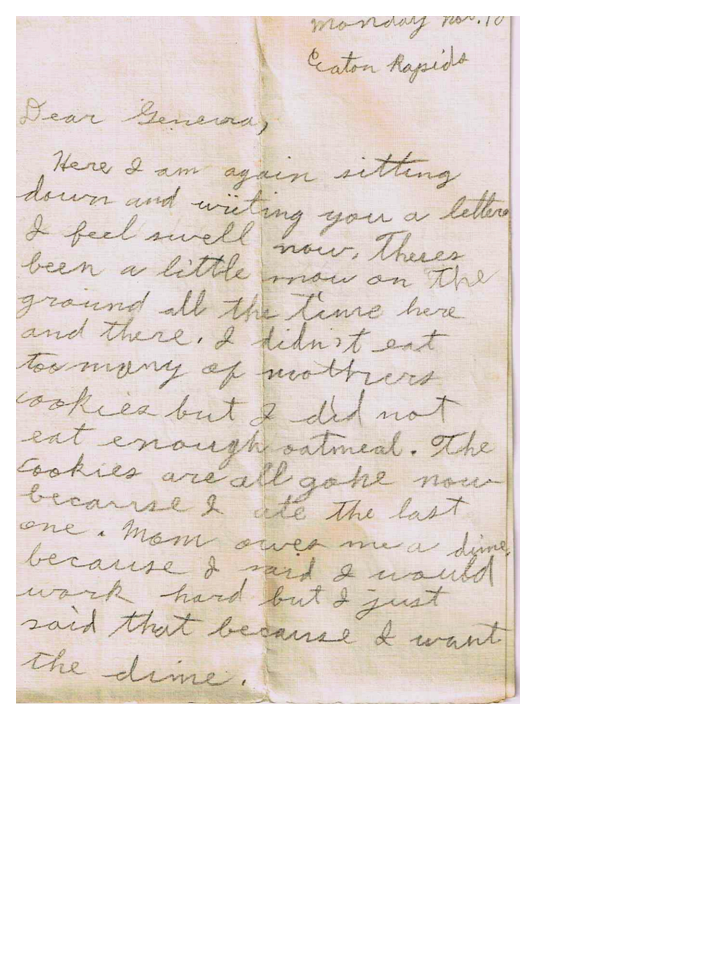 Monday Nov. 10
Eaton Rapids
Dear Geneva,
Here I am again sitting
down and writing you a letter
I feel swell now. Theres
been a little snow on the
ground all the time here
and there. I didn't eat
too many of mothers
cookies but I did not
eat enough oatmeal. The
cookies are all gone now
because I ate the last
one. Mom owes me a dime
because I said I would
work hard but I just
said that because I want
the dime.